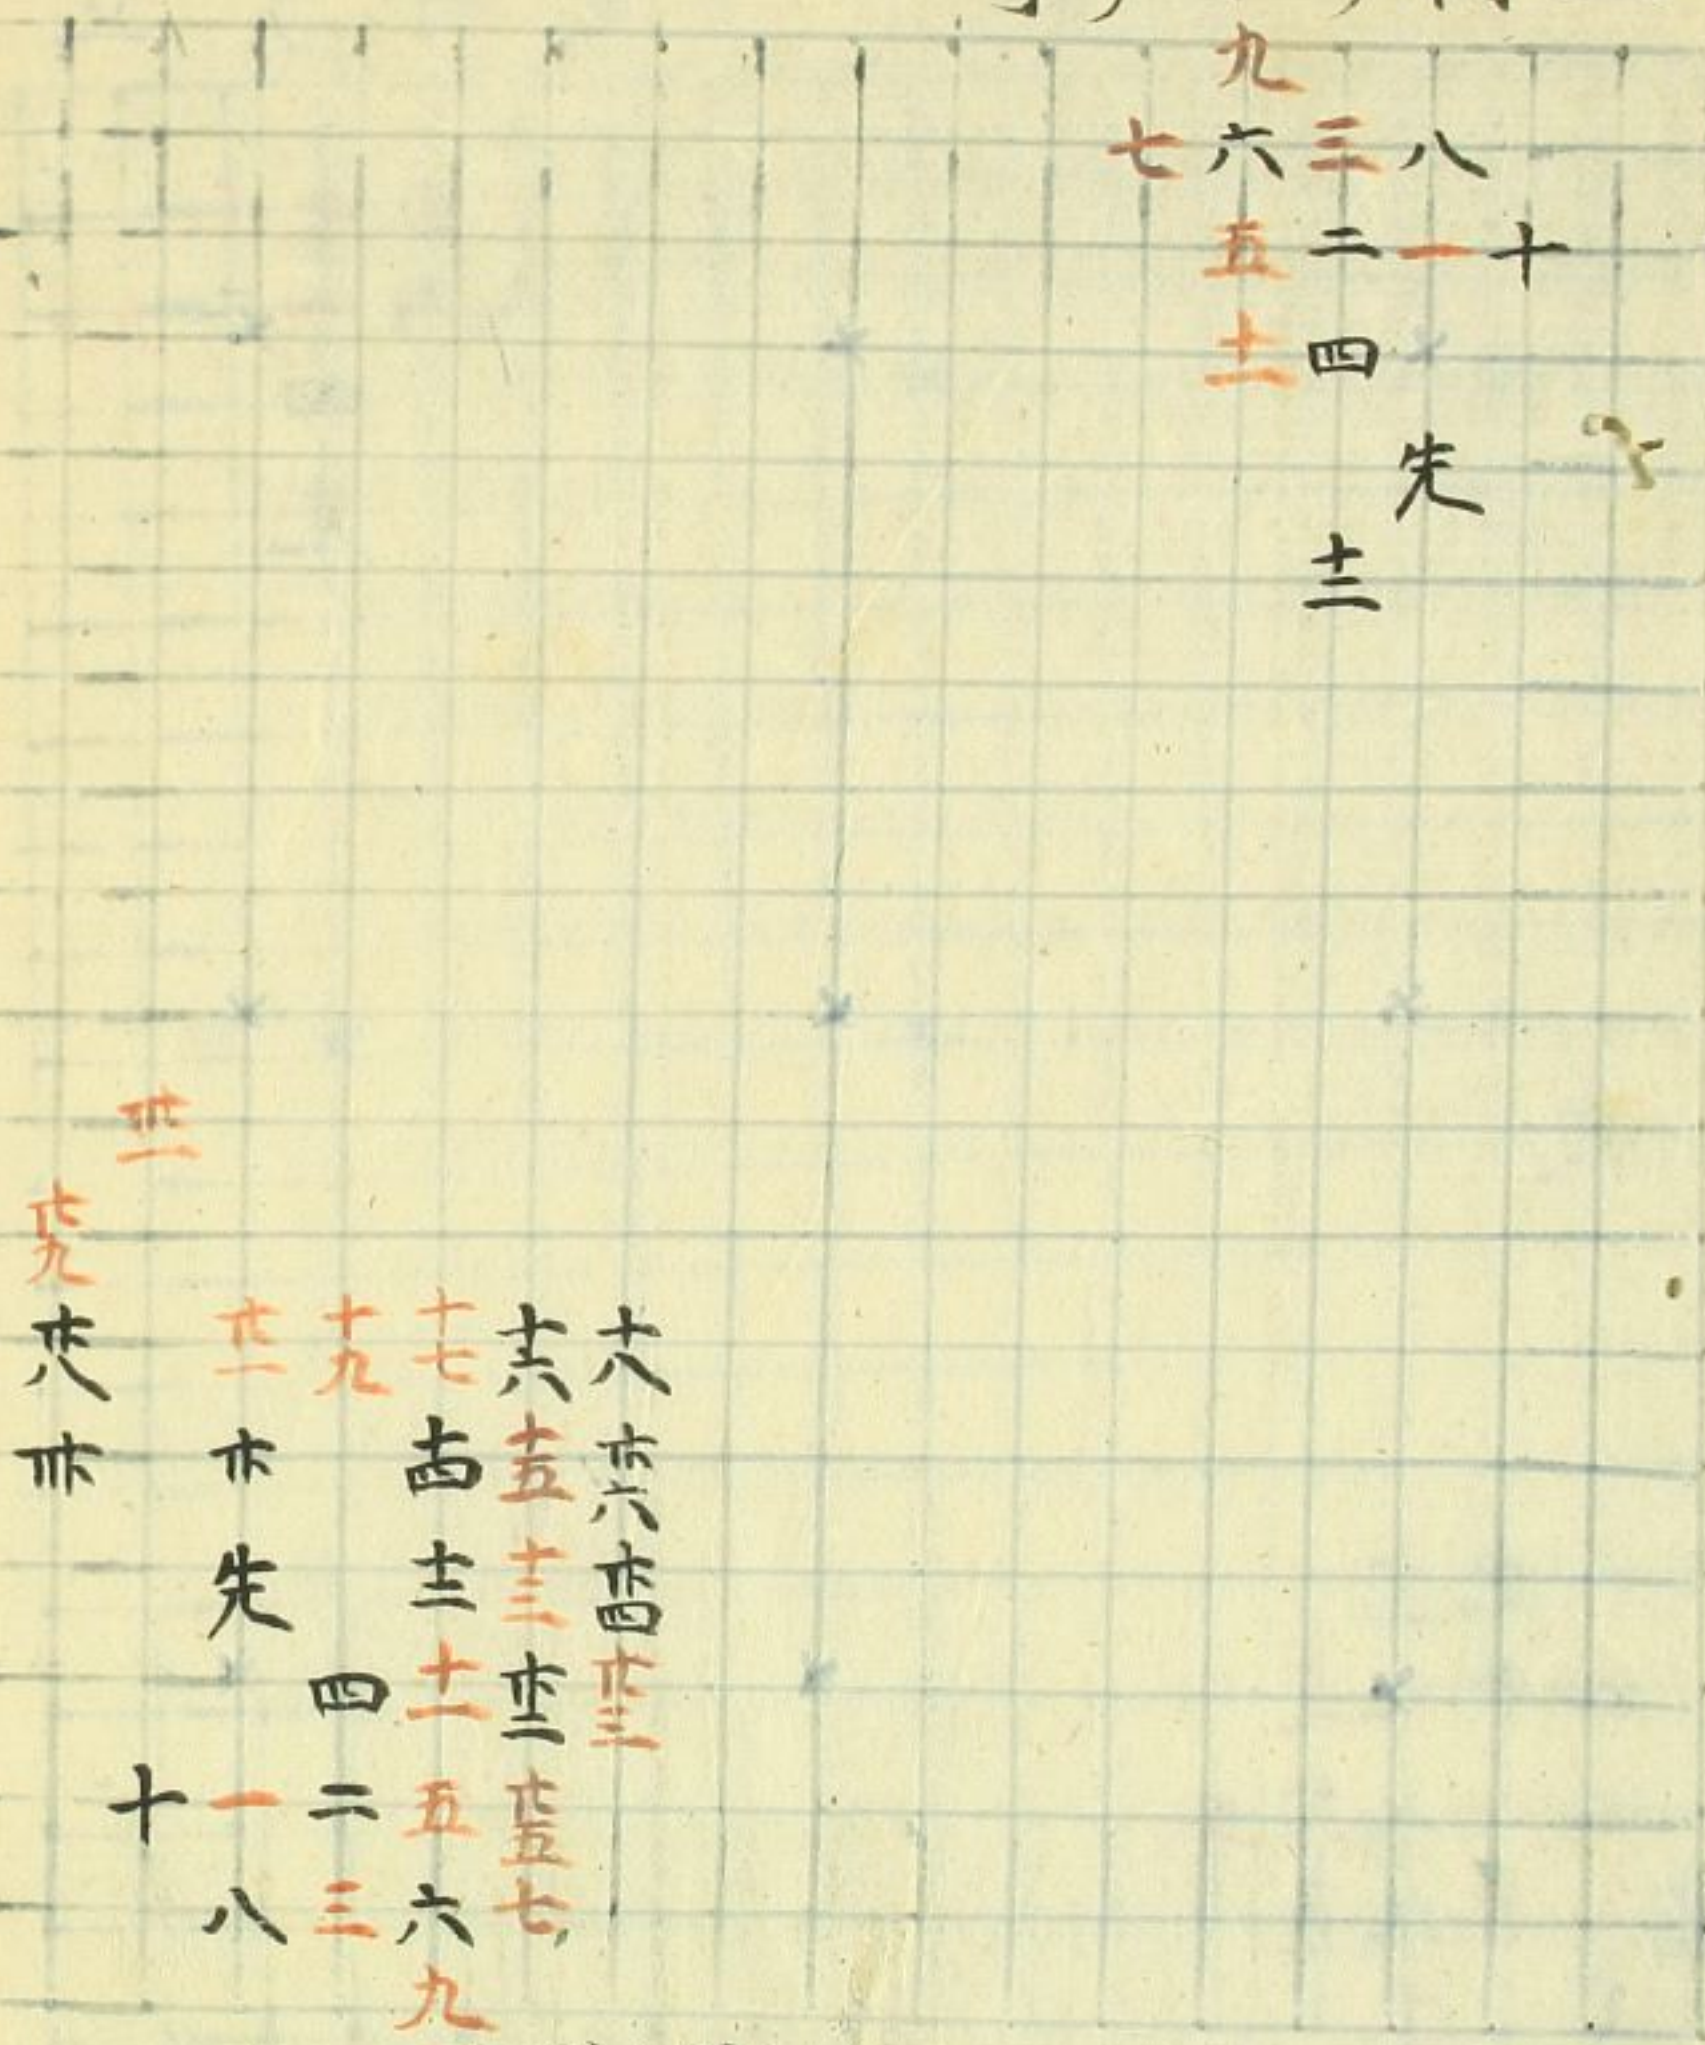 九
七 六 三 八
五 二 一 十
十一 四
先
十二
卅一
廿九
廿八 廿一 十九 十七 十六 十八
卅 廿 十四 十五 廿六
先 十二 十三 廿四
四 十一 廿二 廿三
十 一 二 五 廿五
八 三 六 七
九